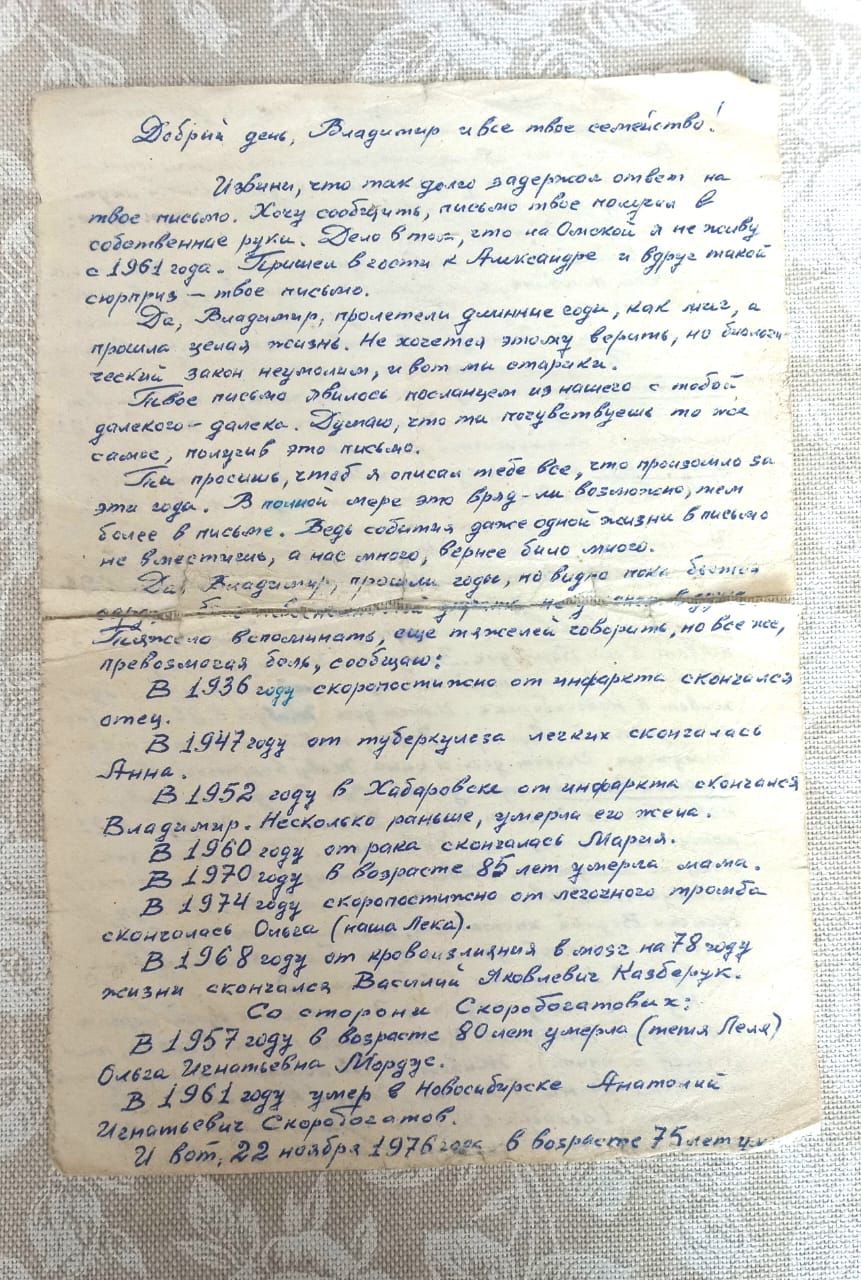 Добрый день, Владимир и все твое семейство!
Извини, что так долго задержал ответ на
твое письмо. Хочу сообщить, письмо твое получил в
собственные руки. Дело в том, что на Омской я не живу
с 1961 года. Пришел в гости к Александре и вдруг такой
сюрприз – твое письмо.
Да, Владимир, пролетели длинные годы, как миг, а
прошла целая жизнь. Не хочется этому верить, но биологи-
ческий закон неумолим, и вот мы старики.
Твое письмо явилось посланцем из нашего с тобой
далекого – далека. Думаю, что ты почувствуешь то же
самое, получив это письмо.
Ты просишь, чтоб я описал тебе все, что произошло за
эти года. В полной мере это вряд-ли возможно, тем
более в письме. Ведь события даже одной жизни в письмо
не вместишь, а нас много, вернее было много.
Да, Владимир, прошли годы, но видно пока бьется
Тяжело вспоминать, еще тяжелей говорить, но все же,
превозмогая боль, сообщаю:
В 1936 году скоропостижно от инфаркта скончался
отец.
В 1947 году от туберкулеза легких скончалась
Анна.
В 1952 году в Хабаровске от инфаркта скончался
Владимир. Несколько раньше, умерла его жена.
В 1960 году от рака скончалась Мария.
В 1970 году в возрасте 85 лет умерла мама.
В 1974 году скоропостижно от легочного тромба
скончалась Ольга (наша Лека).
В 1968 году от кровоизлияния в мозг на 78 году
жизни скончался Василий Яковлевич Казберук.
Со стороны Скоробогатовых:
В 1957 году в возрасте 80 лет умерла (тетя Леля)
Ольга Игнатьевна Мордус.
В 1961 году умер в Новосибирске Анатолий
Игнатьевич Скоробогатов.
И вот, 22 ноября 1976 года в возрасте 75 лет